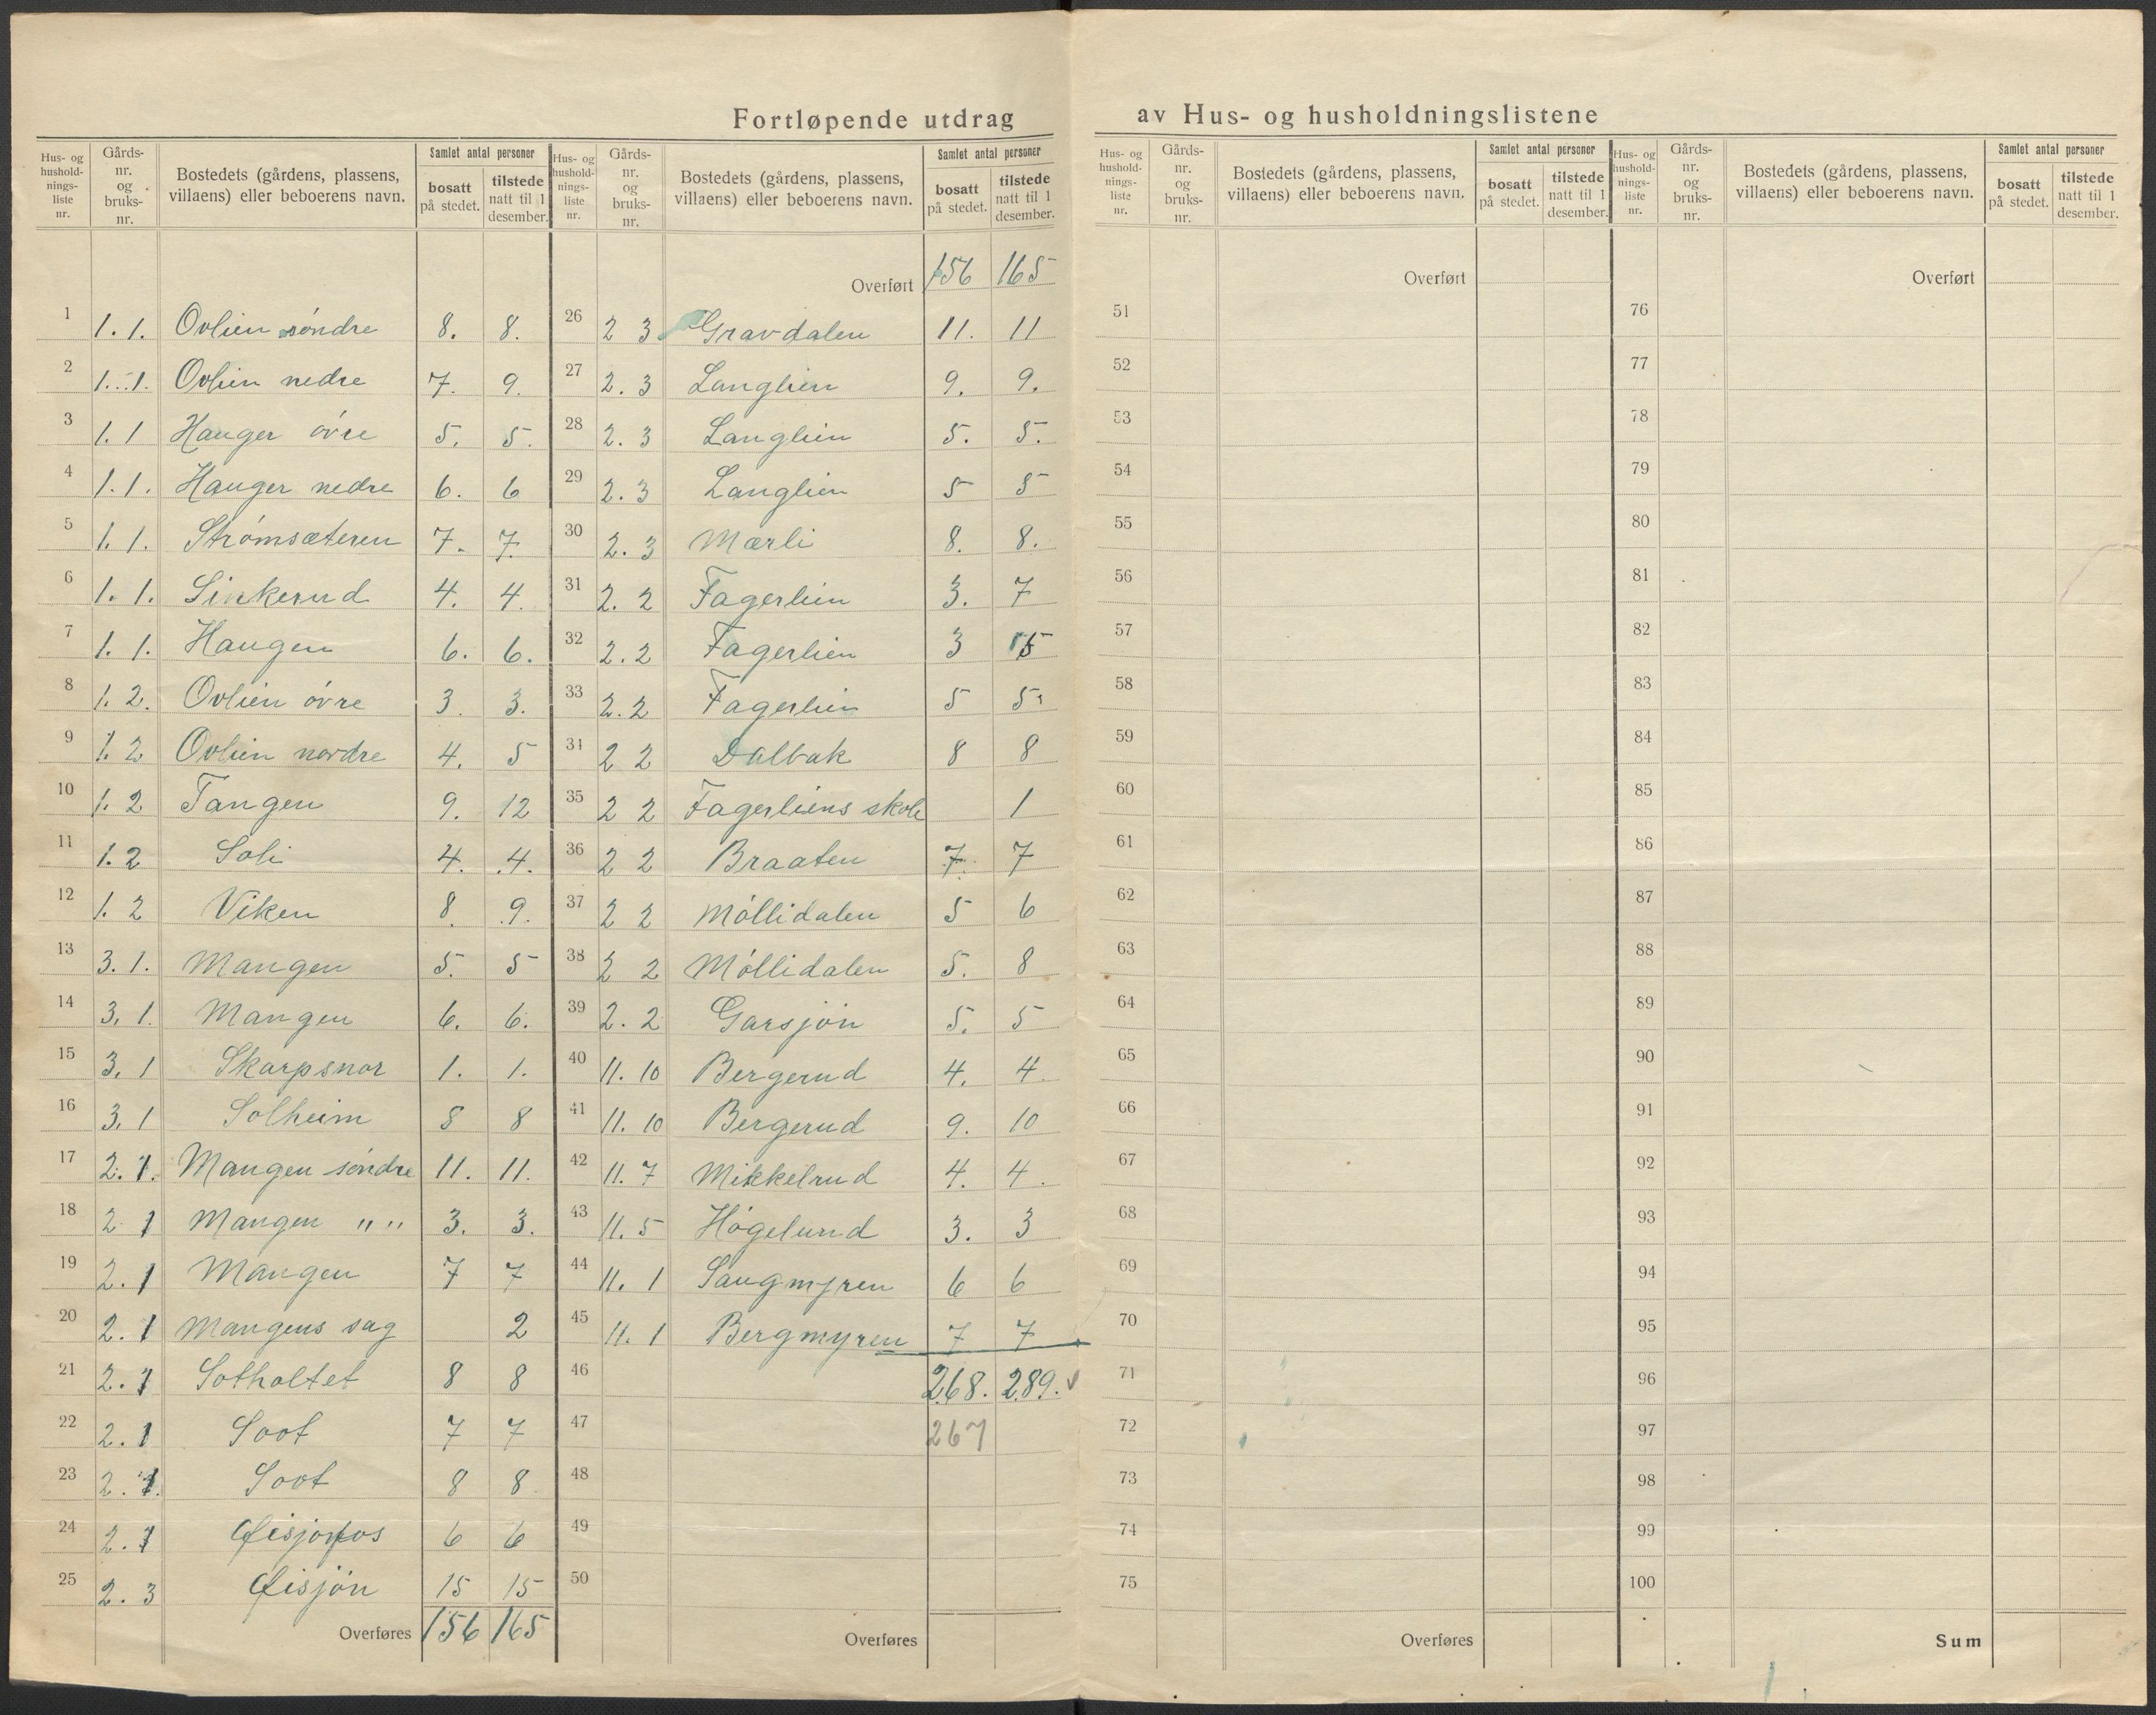 Fortløpende utdrag av Hus- og husholdningslistene
Hus- og hushold-nings-liste nr. Gårds-nr. og bruks-nr. Bostedets (gårdens, plassens, villaens) eller beboerens navn. Samlet antal personer bosatt på stedet. tilstede natt til 1 desember.
1 1. 1. Ovlien söndre 8. 8.
2 1. 1. Ovlien nedre 7. 9.
3 1. 1 Hauger övre 5. 5.
4 1. 1. Hauger nedre 6. 6
5 1. 1. Strömsæteren 7. 7.
6 1. 1. Sinkerud 4. 4.
7 1. 1. Haugen 6. 6.
8 1. 2. Ovlien övre 3. 3.
9 1. 2 Ovlien nordre 4. 5
10 1. 2 Tangen 9. 12
11 1. 2 Soli 4. 4.
12 1. 2 Viken 8. 9.
13 3. 1. Mangen 5. 5
14 3. 1. Mangen 6. 6.
15 3. 1 Skarpsnor 1. 1.
16 3. 1 Solheim 8 8
17 2. 1. Mangen söndre 11. 11.
18 2. 1 Mangen " " 3. 3.
19 2. 1 Mangen 7 7
20 2. 1 Mangens sag 2
21 2. 1 Sotholtet 8 8
22 2. 1 Soot 7 7
23 2. 1. Soot 8 8
24 2. 1 6 6
25 2. 3 15 15
Overføres 156 165
Hus- og hushold-nings-liste nr. Gårds-nr. og bruks-nr. Bostedets (gårdens, plassens, villaens) eller beboerens navn. Samlet antal personer bosatt på stedet. tilstede natt til 1 desember.
Overført 156 165
26 2 3 Gravdalen 11. 11
27 2. 3 Langlien 9. 9.
28 2. 3 Langlien 5. 5.
29 2. 3 Langlien 5 5
30 2. 3 Mærli 8. 8.
31 2. 2 Fagerlien 3. 7
32 2. 2 Fagerlien 3 5
33 2. 2 Fagerlien 5 5
34 2 2 Dalbak 8 8
35 2 2 Fagerliens skole 1
36 2 2 Braaten 7. 7
37 2 2 Möllidalen 5 6
38 2 2 Möllidalen 5. 8
39 2. 2 Garsjön 5. 5
40 11. 10 Bergerud 4. 4.
41 11. 10 Bergerud 9. 10
42 11. 7 Mikkelrud 4. 4.
43 11. 5 Högelund 3. 3
44 11. 1 Saugmyren 6 6
45 11. 1 Bergmyren 7 7
46 268. 289.
47 267
48
49
50
Overføres
Hus- og hushold-nings-liste nr. Gårds-nr. og bruks-nr. Bostedets (gårdens, plassens, villaens) eller beboerens navn. Samlet antal personer bosatt på stedet. tilstede natt til 1 desember.
Overført
51
52
53
54
55
56
57
58
59
60
61
62
63
64
65
66
67
68
69
70
71
72
73
74
75
Overføres
Hus- og hushold-nings-liste nr. Gårds-nr. og bruks-nr. Bostedets (gårdens, plassens, villaens) eller beboerens navn. Samlet antal personer bosatt på stedet. tilstede natt til 1 desember.
Overført
76
77
78
79
80
81
82
83
84
85
86
87
88
89
90
91
92
93
94
95
96
97
98
99
100
Sum